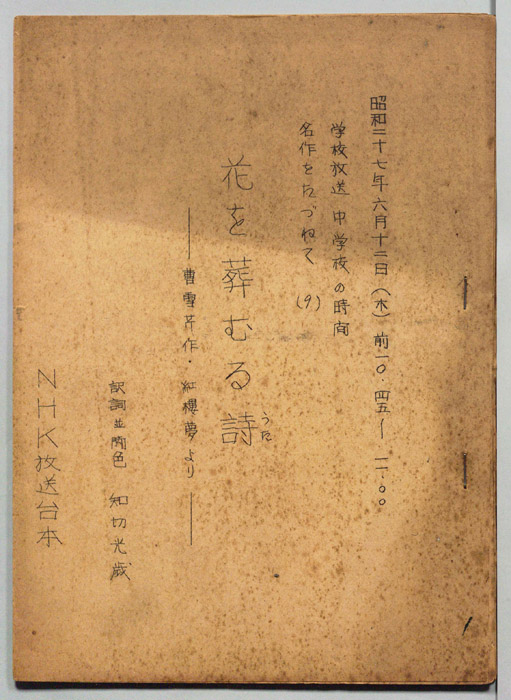 昭和二十七年六月十二日(木)前一〇・四五〜一一・〇〇
学校放送 中学校の時間
名作をたづねて (9)
花を葬むる詩
うた
──曹雪芹作・紅樓夢より──
訳詞並潤色 知切光歳
NHK放送台本